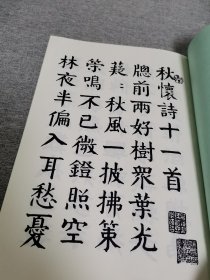 秋懷詩十一首
牕前兩好樹眾葉光
薿〻秋風一披拂策
策鳴不已微鐙照空
牀夜半偏入耳愁憂